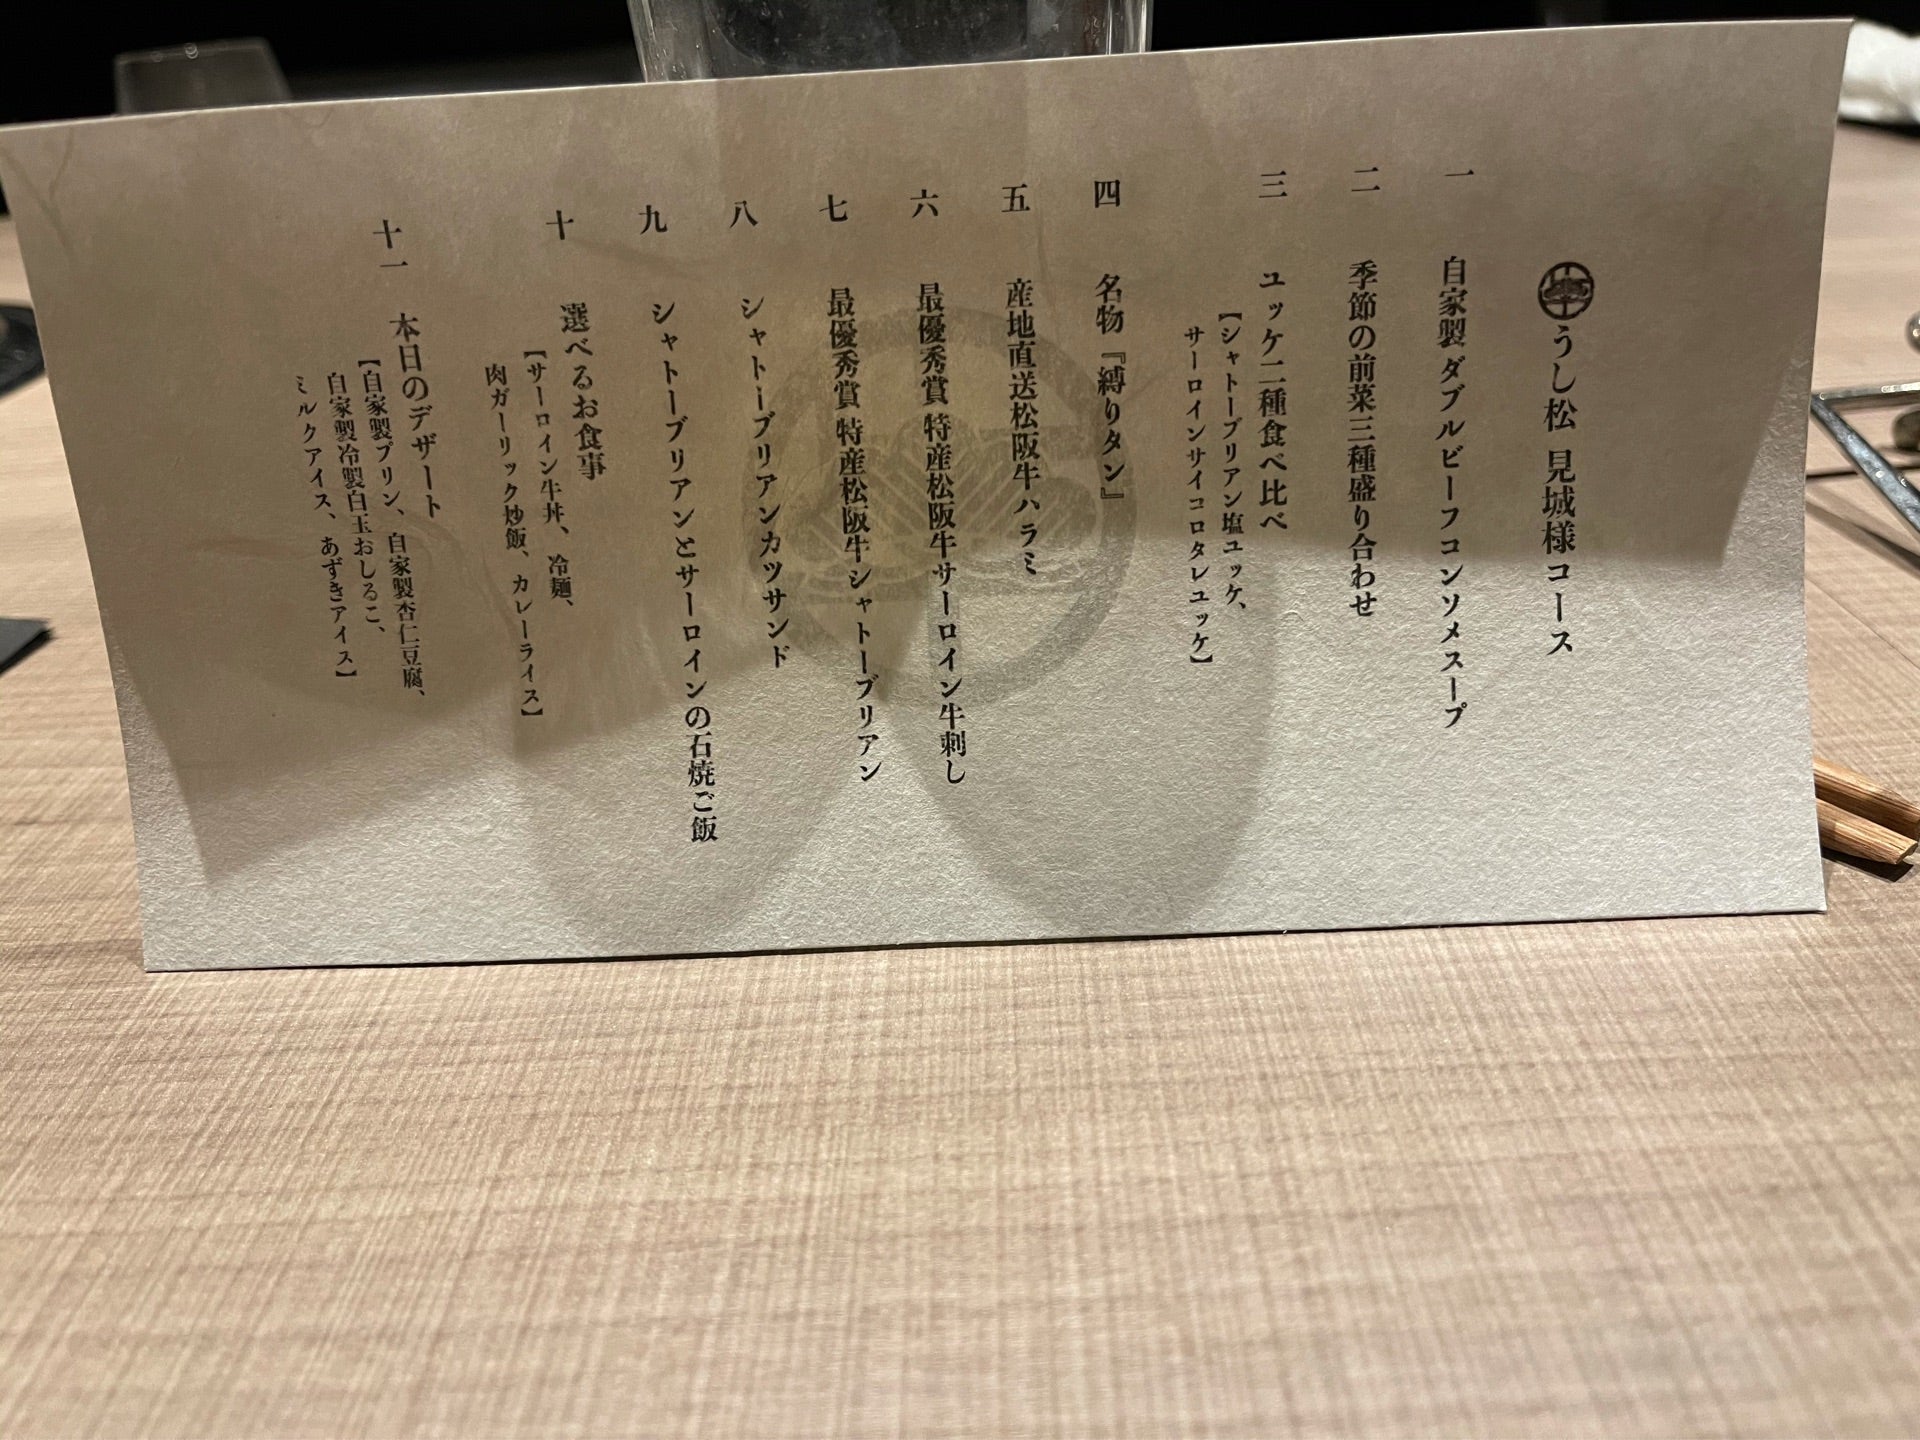 うし松 見城様コース
一 自家製ダブルビーフコンソメスープ
二 季節の前菜三種盛り合わせ
三 ユッケ二種食べ比べ
【シャトーブリアン塩ユッケ、
サーロインサイコロタレユッケ】
四 名物『縛りタン』
五 産地直送松阪牛ハラミ
六 最優秀賞 特産松阪牛サーロイン牛刺し
七 最優秀賞 特産松阪牛シャトーブリアン
八 シャトーブリアンカツサンド
九 シャトーブリアンとサーロインの石焼ご飯
十 選べるお食事
【サーロイン牛丼、冷麺、
肉ガーリック炒飯、カレーライス】
十一 本日のデザート
【自家製プリン、自家製杏仁豆腐、
自家製冷製白玉おしるこ、
ミルクアイス、あずきアイス】